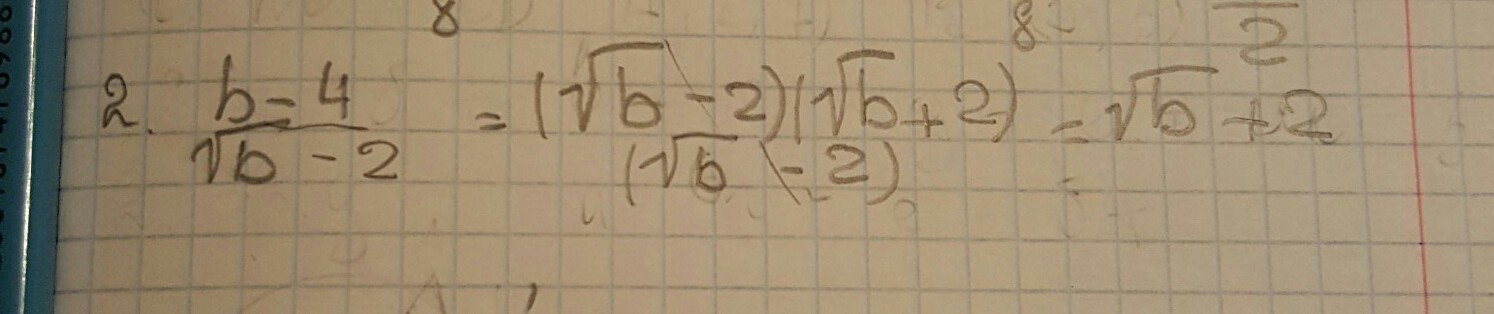 8 8- 2
2. b-4 = (√b-2)(√b+2) = √b+2
√b-2 (√b-2)